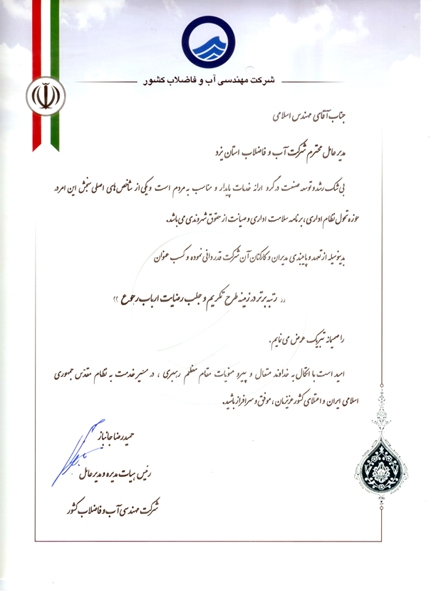 شرکت مهندسی آب و فاضلاب کشور
جناب آقای مهندس اسلامی
مدیرعامل محترم شرکت آب و فاضلاب استان یزد
بی‌شک رشد و توسعه صنعت در گرو ارائه خدمات پایدار و مناسب به مردم است و یکی از شاخص‌های اصلی سنجش این امر در
حوزه تحول نظام اداری، برنامه سلامت اداری و صیانت از حقوق شهروندی می‌باشد.
بدینوسیله از تعهد و پایبندی مدیران و کارکنان آن شرکت قدردانی نموده و کسب عنوان
,, رتبه برتر در زمینه طرح تکریم و جلب رضایت ارباب رجوع ,,
را صمیمانه تبریک عرض می‌نمایم.
امید است با اتکال به خداوند متعال و پیرو منویات مقام معظم رهبری، در مسیر خدمت به نظام مقدس جمهوری
اسلامی ایران و اعتلای کشور عزیزمان، موفق و سرافراز باشید.
حمیدرضا جانباز
رئیس هیات مدیره و مدیرعامل
شرکت مهندسی آب و فاضلاب کشور